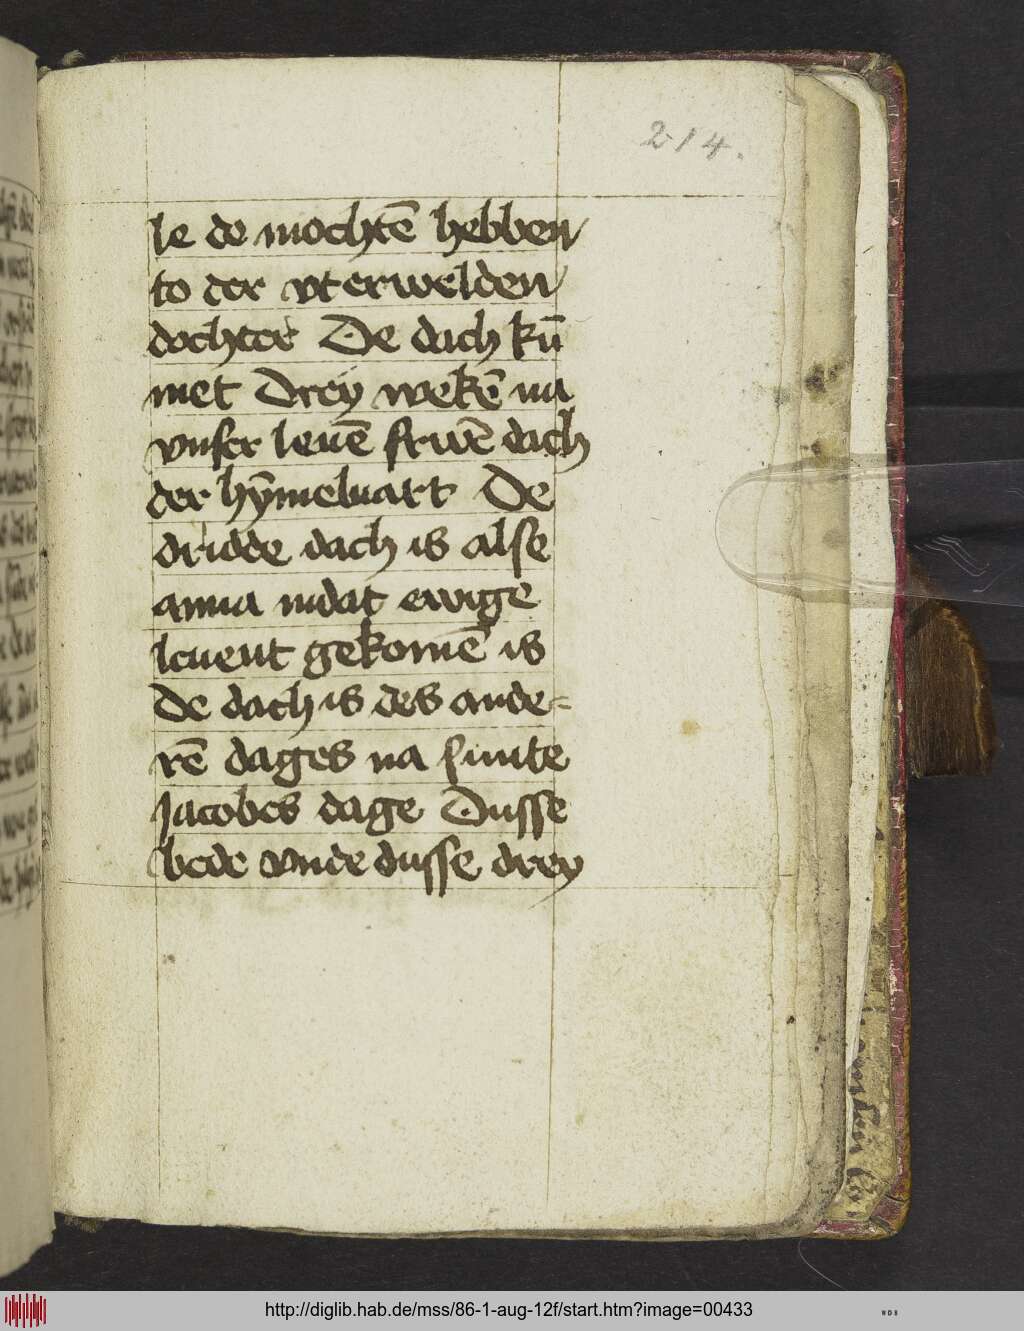 214.
le de mochtē hebben
to der vterwelden
dochter De dach kū
met Drey wekē na
vnser leuē frwē dach
der hȳmeluart De
dridde dach is alse
anna indat ewige
leuent gekomē is
De dach is des ande=
rē dages na sunte
Jacobes dage Dusse
bede vnde dusse drey
http://diglib.hab.de/mss/86-1-aug-12f/start.htm?image=00433